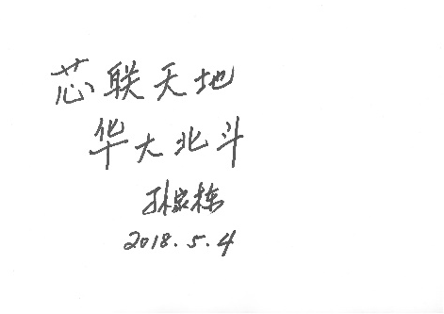 芯联天地
华大北斗
孙家栋
2018.5.4